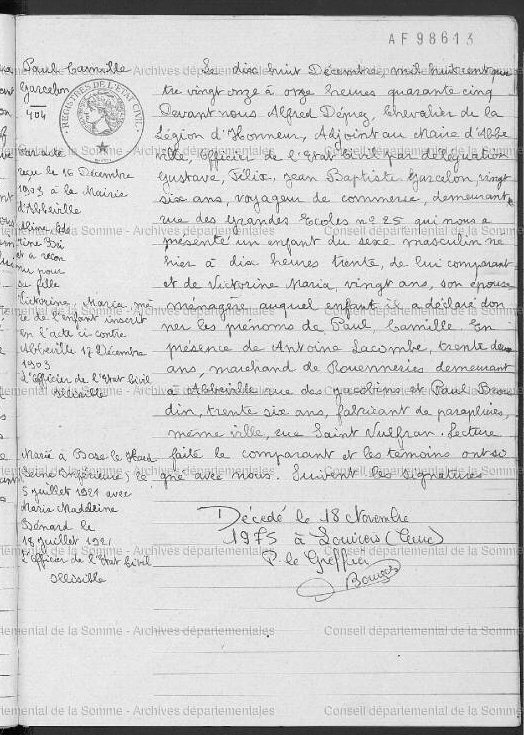 AF98613
Paul Camille
Garcelon
404
REGISTRES DE L'ETAT CIVIL
Par acte
reçu le 16 Décembre
1903 à la Mairie
d'Abbeville
a recon
nu pour
sa fille
Victorine, Maria, mè
re de l'enfant inscrit
en l'acte ci contre
Abbeville 17 Décembre
1903
L'Officier de l'Etat Civil
Illisible
Marié à Bosc le Hard
(Seine Inférieure) le
5 juillet 1921 avec
Maria Madeleine
Bénard le
18 juillet 1921
L'Officier de l'Etat Civil
Illisible
Le dix huit Décembre mil huit cent qua
tre vingt onze à onze heures quarante cinq
Devant nous Alfred Chevalier de la
Légion d'Honneur, Adjoint au Maire d'Abbe
ville, Officier de l'Etat Civil par délégation
Gustave, Félix, Jean Baptiste Garcelon vingt
six ans, voyageur de commerce, demeurant
rue des Grandes Ecoles n° 25 qui nous a
présenté un enfant du sexe masculin né
hier à dix heures trente, de lui comparant
et de Victorine Maria, vingt ans, son épouse
ménagère, auquel enfant il a déclaré don
ner les prénoms de Paul, Camille En
présence de Antoine Lacombe, trente deux
ans, marchand de Rouenneries demeurant
à Abbeville rue des Jacobins et Paul
din, trente six ans, fabricant de parapluies,
même ville, rue Saint Vulfran. Lecture
faite le comparant et les témoins ont si
gné avec nous. Suivent les signatures
Décédé le 18 Novembre
1975 à Louviers (Eure)
P. le Greffier
Conseil départemental de la Somme - Archives départementales